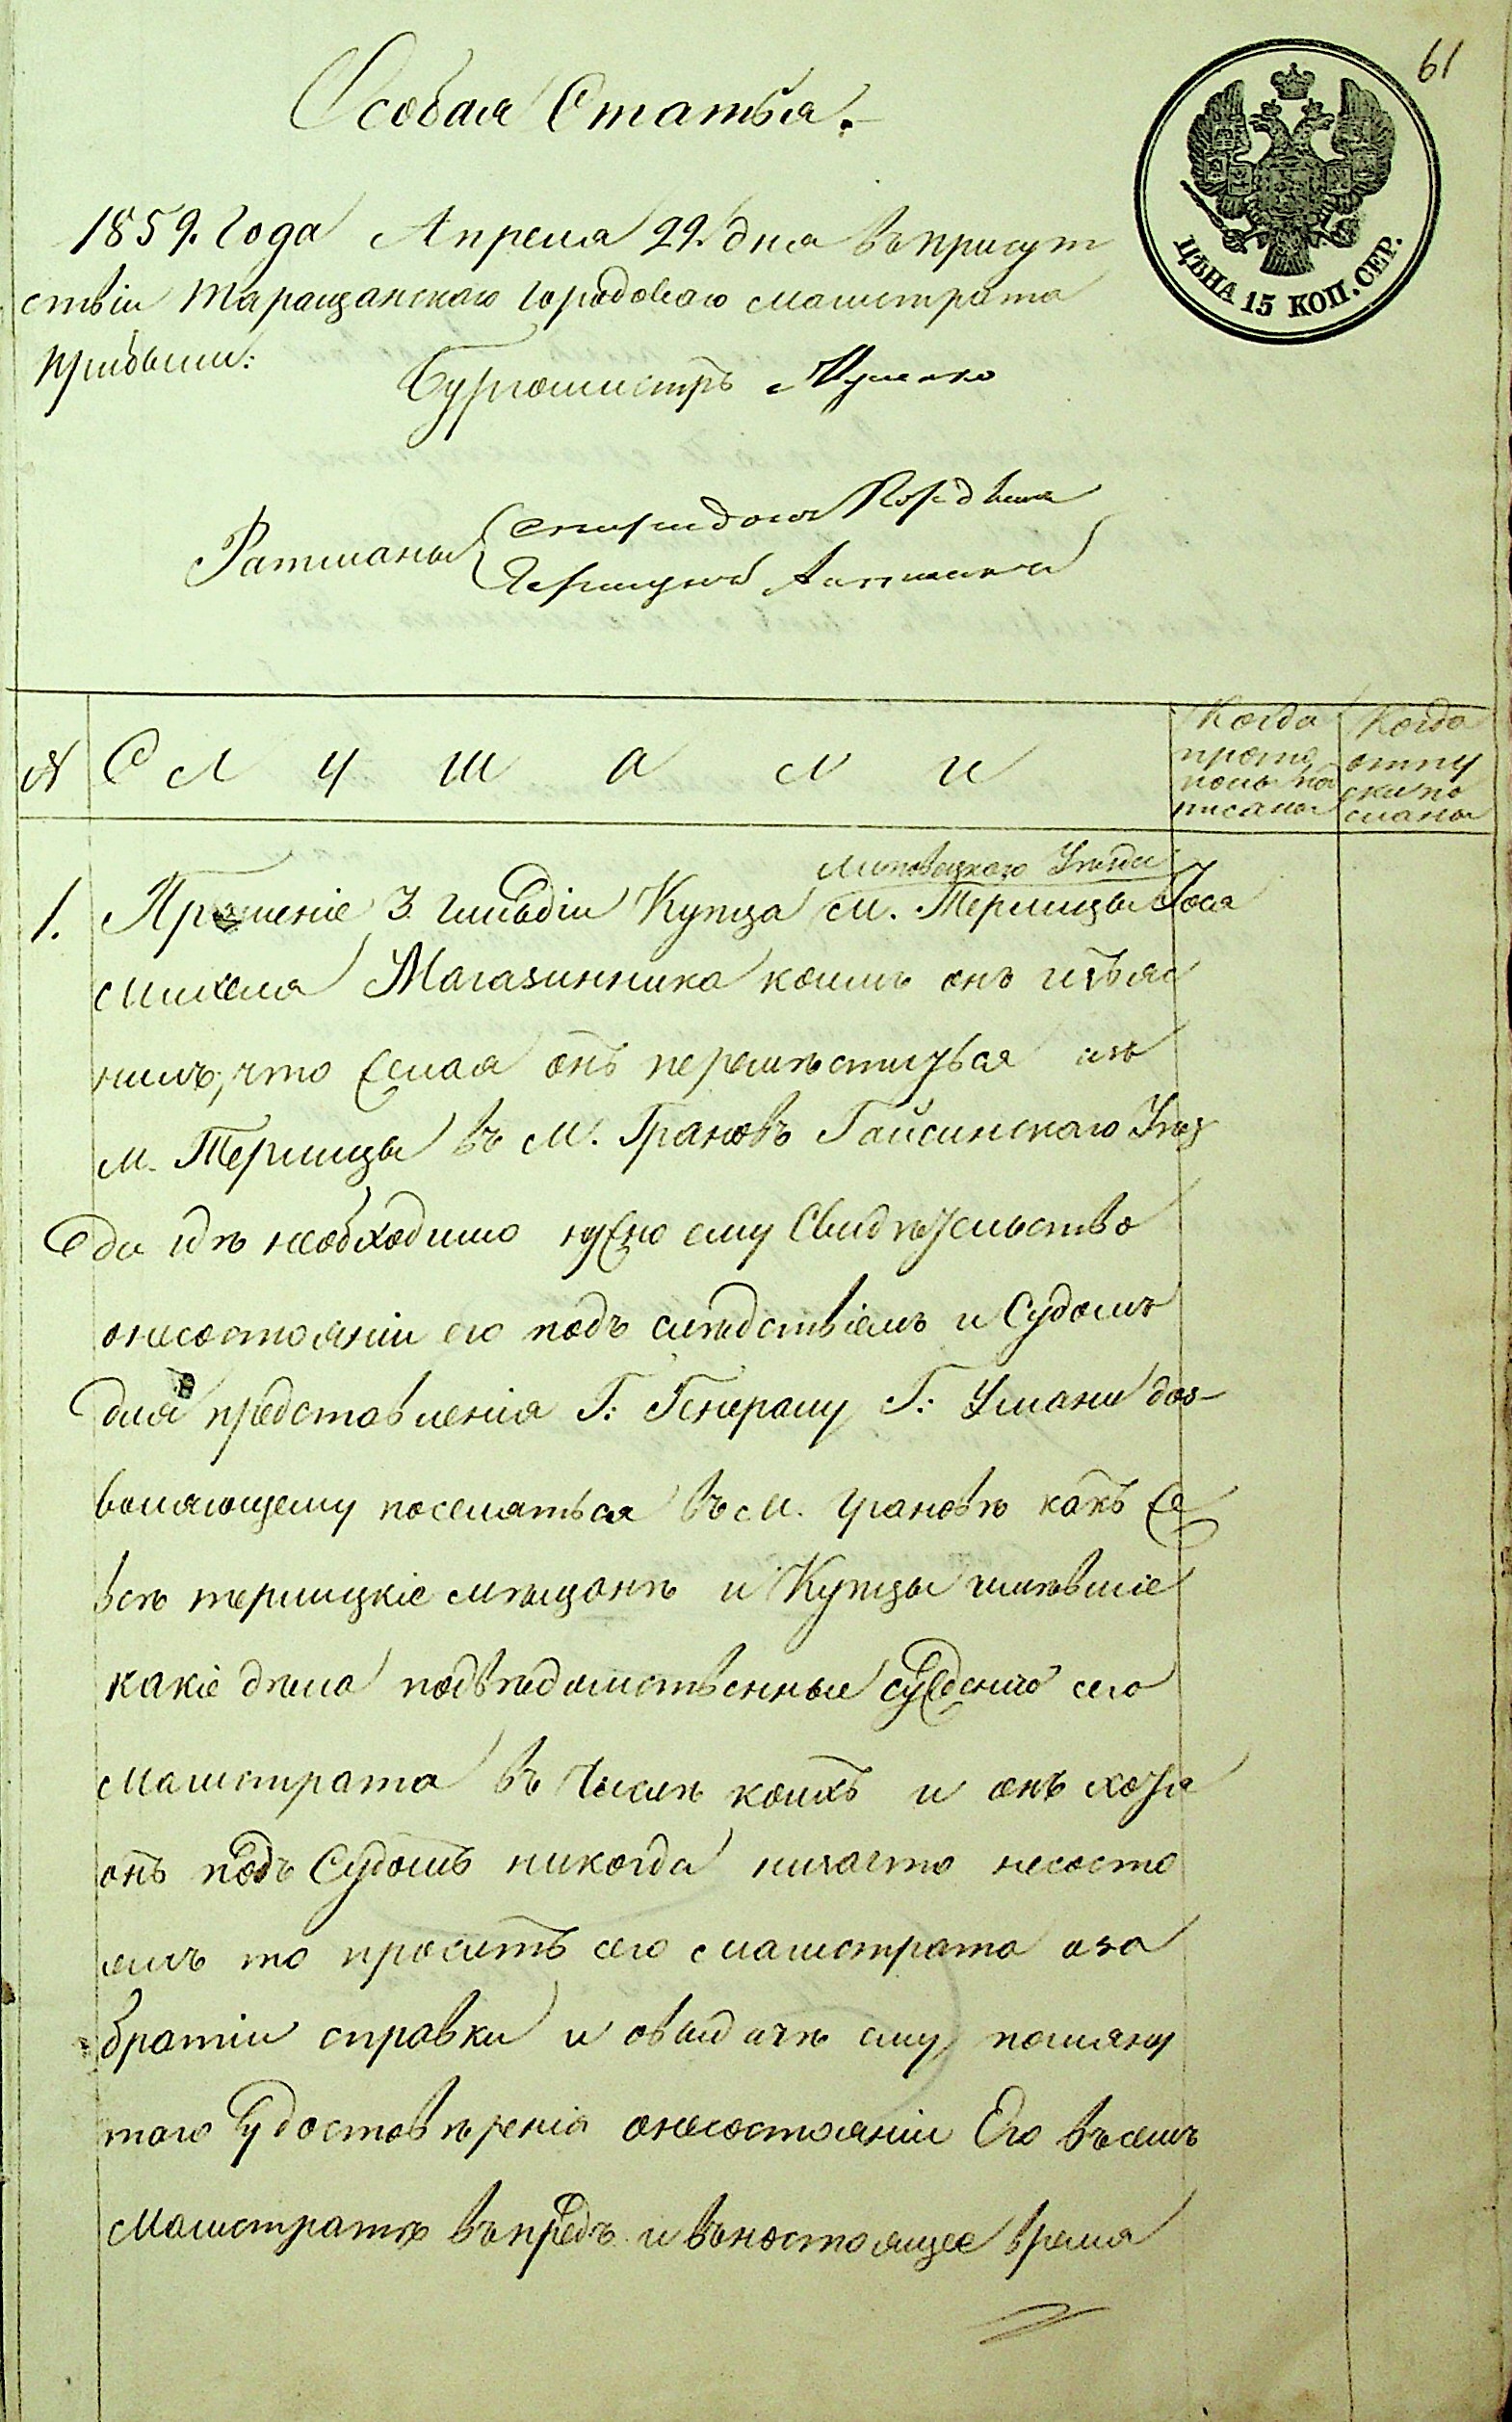 61
Особая Статья.
ЦѢНА 15 КОП. СЕР.
1859. Года Апреля 29. дня въ присут
ствіи Таращанскаго городоваго магистрата
прибыли:
Бургомистръ
Ратманы
№ Слушали
Когда прото колы по писаны
Когда отпу ски по сланы
Липовецкаго Уѣзда
1. Прошеніе 3. гильдіи Купца м. Терлицы Іося
Михеля Магазинника коимъ онъ изъяс
нилъ, что желая онъ перемѣститься изъ
м. Терлицы въ м. Грановъ Гайсинскаго Уѣз
да гдѣ необходимо нужно ему Свидѣтельство
онесостояніи его подъ слѣдствіемъ и Судомъ
для представленія Г: Генералу Г: Умани доз-
воляющему поселяться въ м. Грановѣ какъ же
всѣ терлицкіе мѣщанѣ и Купцы имѣвшіе
какіе дѣла подвѣдомственные сужденію сего
магистрата въ числѣ коихъ и онъ хотя
онъ подъ Судомъ никогда низачто несосто
ялъ то проситъ сего магистрата оза
братіи справки и овыдачѣ ему помяну
таго Удостовѣренія онесостояніи Его въ семъ
магистратѣ въпредъ и вънастоящее время